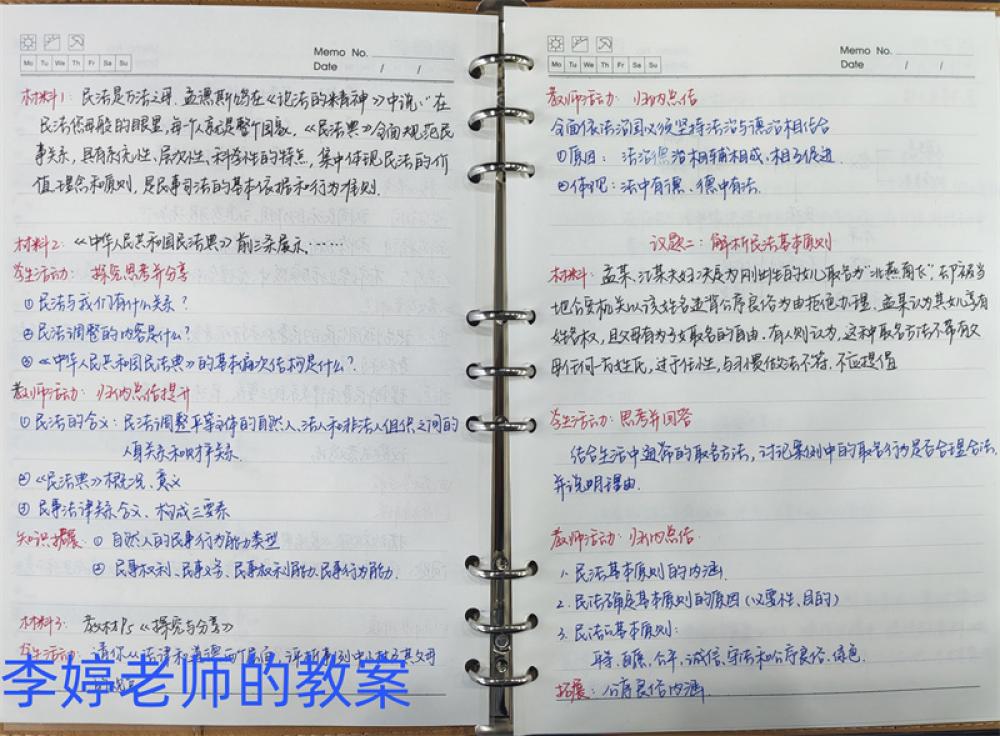 Memo No.
Mo Tu We Th Fr Sa Su
Date / /
材料1: 民法是万法之母.孟德斯鸠在《论法的精神》中说:"在
民法慈母般的眼里,每个人就是整个国家.《民法典》全面规范民
事关系,具有系统性、层次性、科学性的特点,集中体现民法的价
值、理念和原则,是民事司法的基本依据和行为准则.
材料2: 《中华人民共和国民法典》前三条展示……
学生活动: 探究思考并分享
①民法与我们有什么关系?
②民法调整的内容是什么?
③《中华人民共和国民法典》的基本编次结构是什么?
教师活动: 归纳总结提升
①民法的含义:民法调整平等主体的自然人、法人和非法人组织之间的
人身关系和财产关系.
②《民法典》概况、意义
③民事法律关系含义、构成三要素
知识拓展: ①自然人的民事行为能力类型
②民事权利、民事义务、民事权利能力、民事行为能力.
材料3: 教材P5《探究与分享》
学生活动: 请你从法律和道德两个角度,评析事例中小林及其父母
李婷老师的教案
Memo No.
Mo Tu We Th Fr Sa Su
Date / /
教师活动: 归纳总结
全面依法治国必须坚持法治与德治相结合
①原因: 法治德治相辅相成、相互促进
②体现: 法中有德、德中有法.
议题二: 解析民法基本原则
材料: 孟某、江某夫妇决定为刚出生的女儿取名为"北燕南飞",却被当
地公安机关以该姓名违背公序良俗为由拒绝办理.孟某认为其女儿享有
姓名权,且父母有为子女取名的自由.有人则认为,这种取名方法不等有效
用任何一方姓氏,过于任性,与习惯做法不符.不应提倡
学生活动: 思考并回答
结合生活中通常的取名方法,讨论案例中的取名行为是否合理合法,
并说明理由.
教师活动: 归纳总结.
1.民法基本原则的内涵.
2.民法确定基本原则的原因(必要性、目的)
3.民法的基本原则:
平等、自愿、公平、诚信、守法和公序良俗、绿色.
拓展: 公序良俗内涵